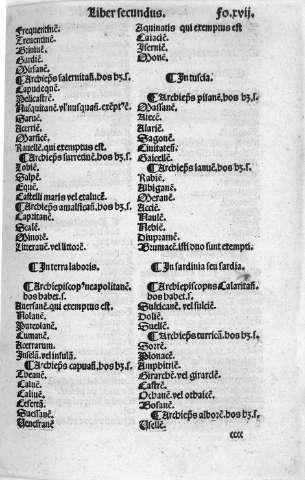 Liber secundus. Fo.xvij.
Frequentinē.
Treuentinē.
Briniuē.
Gardiē.
Mirsanē.
¶Archiep̄s salernitañ.hos hꝫ.s.
Capudequē.
Policastrē.
Nusquitanē.vl'nusquañ.exēpt'ē.
Sarnē.
Acerriē.
Marsicē.
Rauellē.qui exemptus est.
¶Archiep̄s surrētinē.hos hꝫ.s.
Lobiē.
Salpē.
Equē.
Castelli maris vel etalucē.
¶Archiep̄s amalficañ.hos hꝫ.s.
Capritanē.
Scalē.
Minorē.
Litteranē.vel littorē.
¶In terra laboris.
¶Archiepiscop⁹neapolitanē.
hos habet.s.
Auersanē.qui exemptus est.
Nolanē.
Puteolanē.
Cumanē.
Acerrarum.
Insclañ.vel insulā.
¶Archiep̄s capuañ.hos hꝫ.s.
Theanē.
Caluē.
Caliuē.
Caserrā.
Suessanē.
Venefranē
Aquinatis qui exemptus est
Caiaciē.
Iserniē.
Monē.
¶In tuscia.
¶Archiep̄s pisanē.hos hꝫ.s.
Massanē.
Aiecē.
Alariē.
Sagonē.
Ciuitateñ.
Galcellē.
¶Archiep̄s ianuē.hos hꝫ.s.
Rabiē.
Albiganē.
Meranē.
Acciē.
Naulē.
Nebiē.
Diupramē.
Brumacē.isti duo sunt exempti.
¶In sardinia seu sardia.
¶Archiepiscopus Calaritañ.
hos habet.s.
Sulcicanē.vel sulciē.
Doliē.
Suellē.
¶Archiep̄s turricā.hos hꝫ.s.
Sorrē.
Plonacē.
Ampbitriē.
Girarchē.vel girardē.
Castrē.
Othanē.vel othaicē.
Bosanē.
¶Archiep̄s alborē.hos hꝫ.s.
Usellē.
cccc